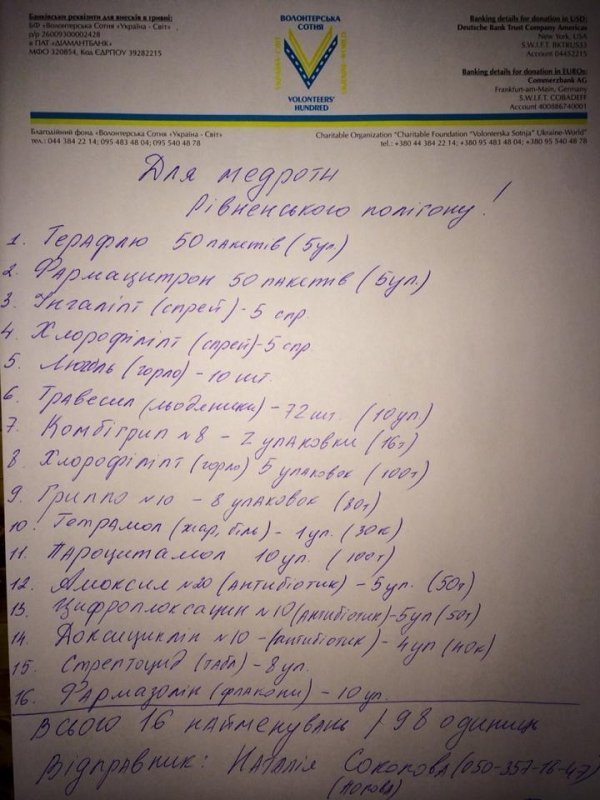 Банківські реквізити для внесків в гривні:
БФ «Волонтерська Сотня «Україна - Світ»
р/р 26009300002428
в ПАТ «ДІАМАНТБАНК»
МФО 320854, Код ЄДРПОУ 39282215
ВОЛОНТЕРСЬКА
СОТНЯ
УКРАЇНА - СВІТ
UKRAINE - WORLD
VOLONTEERS'
HUNDRED
Banking details for donation in USD:
Deutsche Bank Trust Company Americas
New York, USA
S.W.I.F.T. BKTRUS33
Account 04452215
Banking details for donation in EUROs:
Commerzbank AG
Frankfurt-am-Main, Germany
S.W.I.F.T. COBADEFF
Account 400886740001
Благодійний фонд «Волонтерська Сотня «Україна - Світ»
тел.: 044 384 22 14; 095 483 48 04; 095 540 48 78
Charitable Organization "Charitable Foundation "Volonterska Sotnja" Ukraine-World"
tel.: +380 44 384 22 14; +380 95 483 48 04; +380 95 540 48 78
Для медроти
Рівненського полігону!
1. Терафлю 50 пакетів (5уп)
2. Фармацитрон 50 пакетів (5уп.)
3. Інгаліпт (спрей) - 5 спр.
4. Хлорофіліпт (спрей) - 5 спр.
5. (горло) - 10 шт.
6. Травесил (льодяники) - 72 шт. (10 уп)
7. Комбігрип №8 - 2 упаковки (16т)
8. Хлорофіліпт (горло) 5 упаковок (100т)
9. Гриппо №10 - 8 упаковок (80т)
10. Тетрамол (жар, біль) - 1 уп. (30к)
11. Пароцитамол 10 уп. (100т)
12. Амоксил №20 (антибіотик) - 5 уп. (50т)
13. Цифроплоксацин №10 (антибіотик) - 5уп (50т)
14. Доксициклін №10 - (антибіотик) - 4уп (40к)
15. Стрептоцид (табл) - 8 уп.
16. Фармазолін (флакони) - 10 уп.
Всього 16 найменувань / 98 одиниць
Відправник: Наталія Соколова (050-357-16-47)
(Попова)